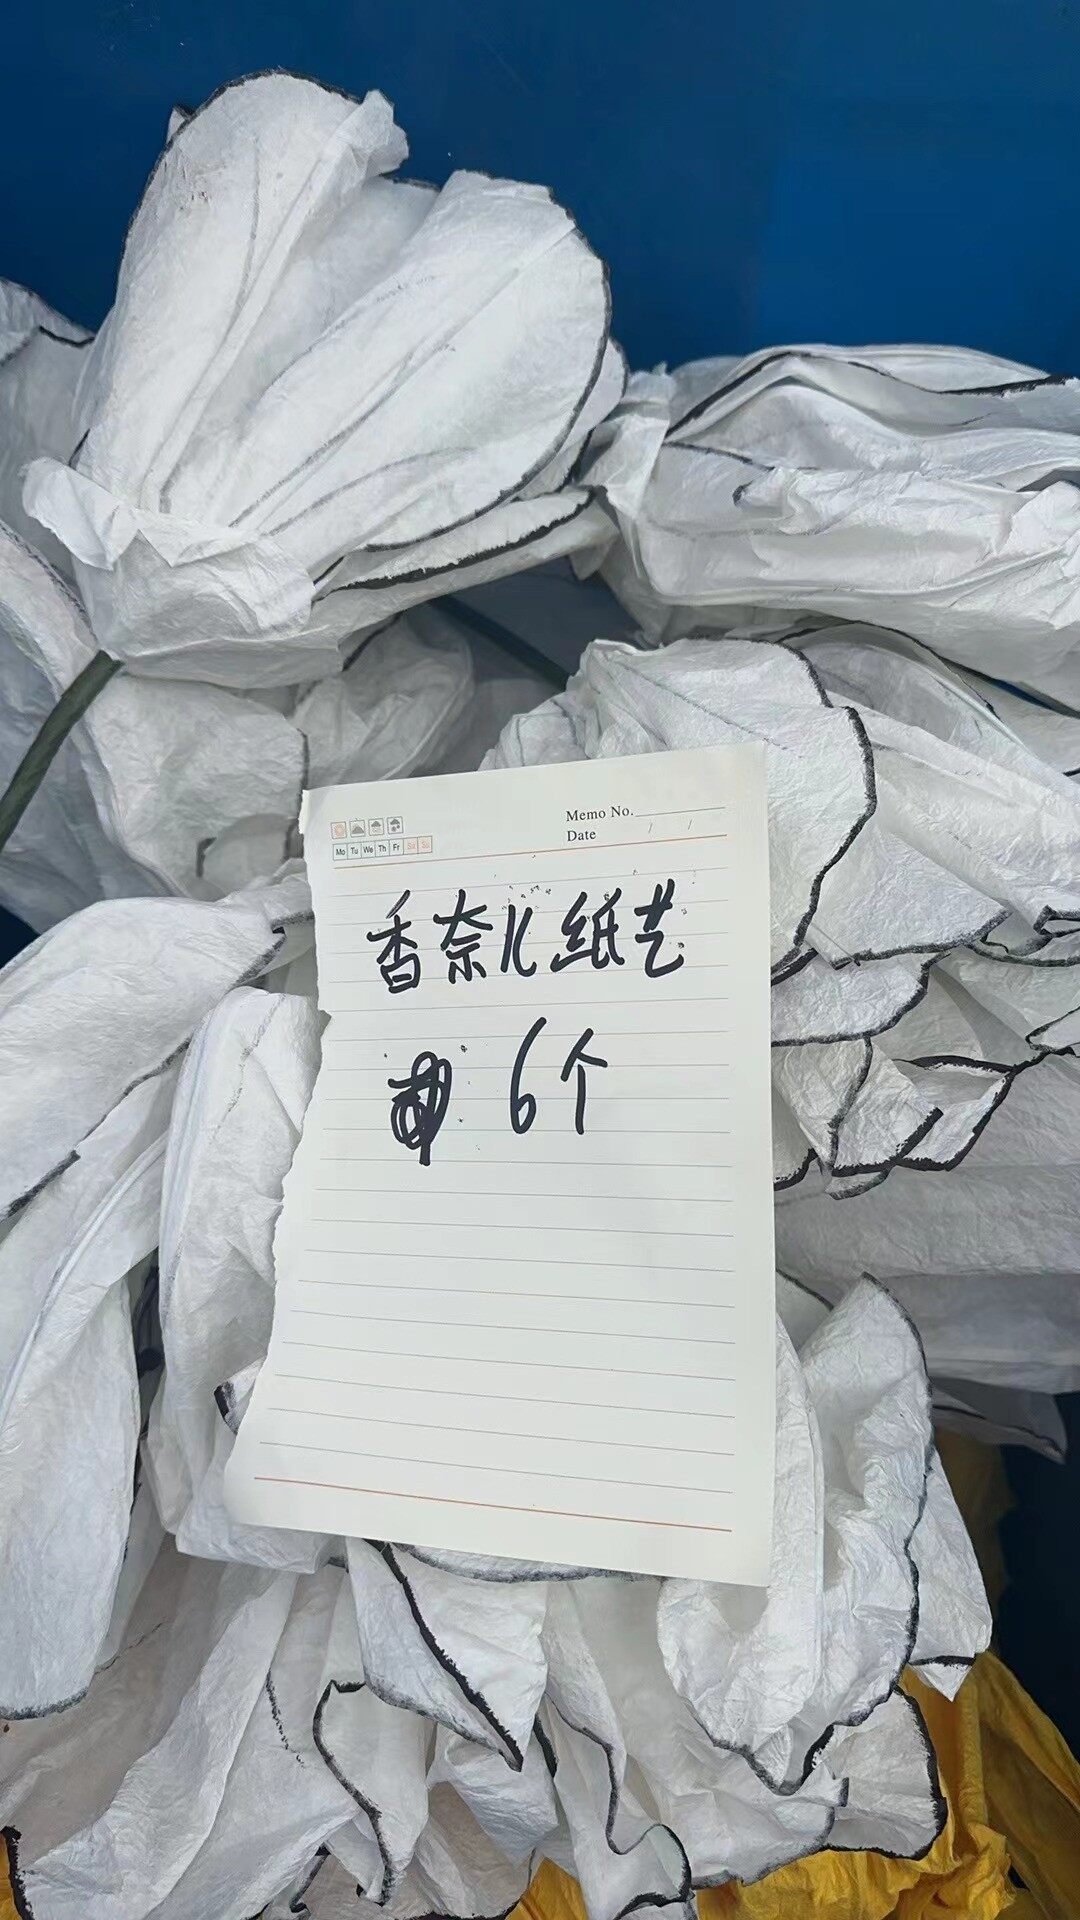 Memo No.
Date / /
Mo Tu We Th Fr Sa Su
香奈儿纸艺
6个